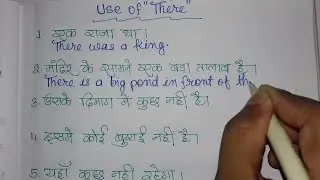 Use of "There"
1. एक राजा था।
There was a king.
2. मंदिर के सामने एक बड़ा तालाब है।
There is a big pond in front of th
3. उसके दिमाग में कुछ नहीं है।
4. इसमें कोई बुराई नहीं है।
5. यहाँ कुछ नहीं रहेगा।